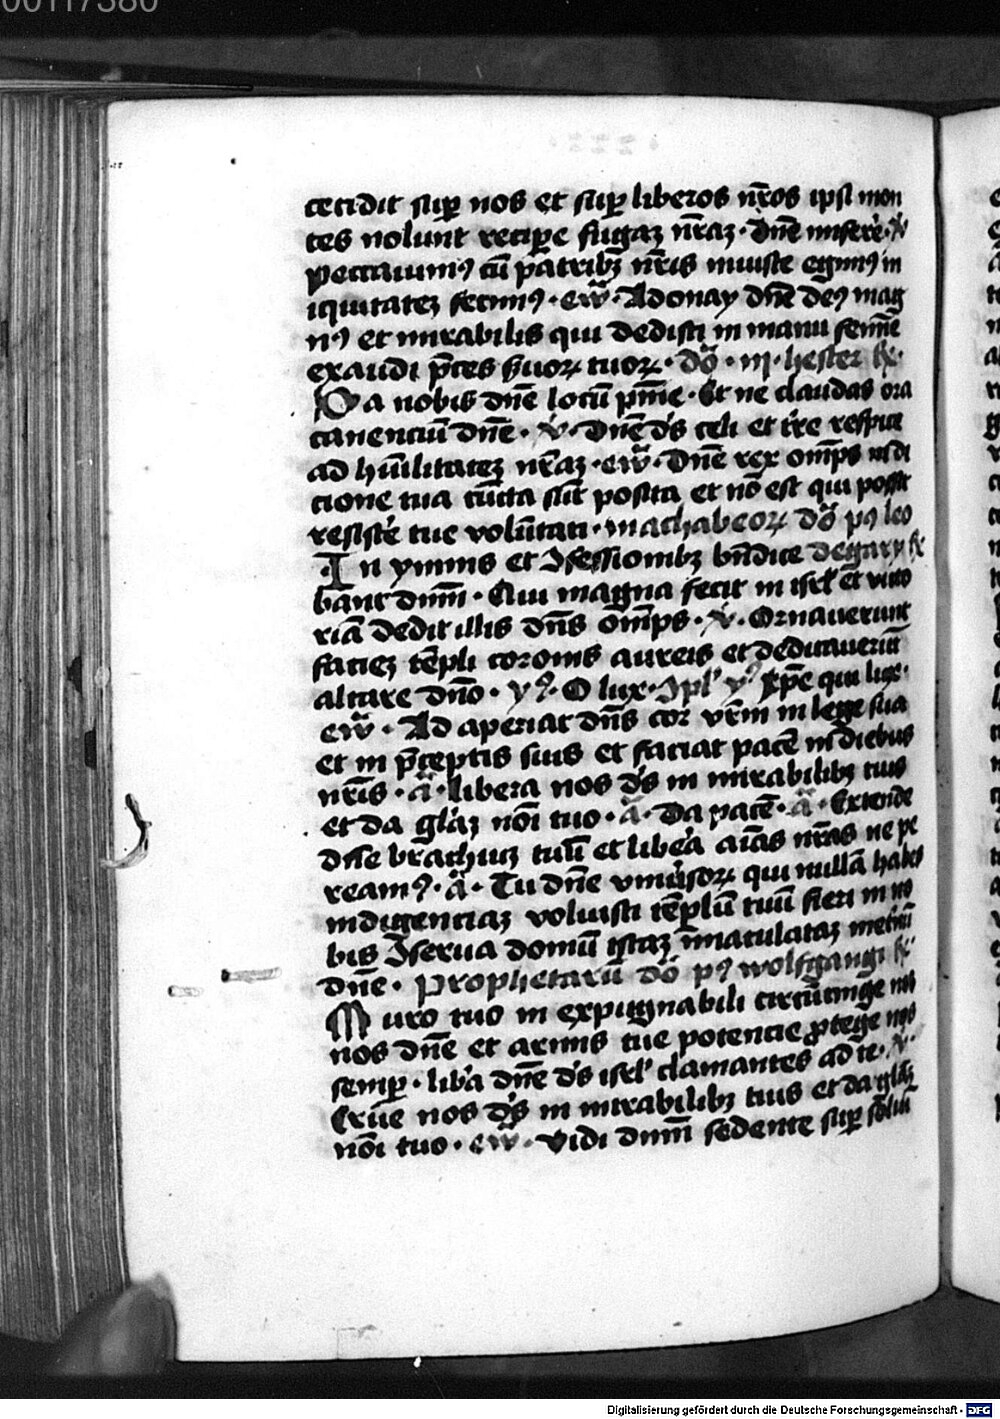 00117380
cecidit suꝑ nos et suꝑ liberos nr̄os ipsi mon
tes nolunt recipe fugaꝫ nr̄aꝫ · dn̄e misere · ℣
peccauimꝰ cū patribꝫ nr̄is iniuste egimꝰ in
iquitateꝫ fecimꝰ · ew̄ · Adonay dn̄e deꝰ mag
nꝰ et mirabilis qui dedisti in manu femīe
exaudi p̄ces ẜuoꝝ tuoꝝ · dō · iij · hester ℟ ·
Da nobis dn̄e locū pn̄ie · Et ne claudas ora
canenciū dn̄e · ℣ · Dn̄e ds̄ celi et tr̄e respice
ad hūilitateꝫ nr̄aꝫ · ew̄ · Dn̄e rex om̄ps in di
cione tua cūcta sūt posita et nō est qui possit
resistē tue volūtati · machabeoꝝ dō pꝰ leo
In ymnis et ꝯfessionibꝫ bn̄dice degarii ℟
bant dn̄m · Qui magna fecit in isrl̄ et victo
riā dedit illis dn̄s om̄ps · ℣ · Ornauerunt
facieꝫ tēpli coronis aureis et dedicauerūt
altare dn̄o · yꝰ · O lux · ipl̄ yꝰ xp̄e qui lux ·
ew̄ · Ad aperiat dn̄s cor vr̄m in lege sua
et in p̄ceptis suis et faciat pacē in diebus
nr̄is · ā · libera nos ds̄ in mirabilibꝫ tuis
et da gl̄aꝫ nōi tuo · ā · Da pacē · ā · Extende
dn̄e brachiuꝫ tuū et liberā aīas nr̄as ne pe
reamꝰ · ā · Tu dn̄e vniūsoꝝ qui nullā habes
indigenciaꝫ voluisti tēplū tuū fieri in no
bis ꝯserua domū istaꝫ īmaculataꝫ ineternū
dn̄e · Prophetarū dō pꝰ wolfgangi ℟
Muro tuo in expugnabili circūcinge
nos dn̄e et armis tue potencie ꝓtege nos
semꝑ · libā dn̄e ds̄ isrl̄ clamantes ad te · ℣ ·
Erue nos ds̄ in mirabilibꝫ tuis et da gl̄aꝫ
nōi tuo · ew̄ · Vidi dn̄m sedente suꝑ soliū
Digitalisierung gefördert durch die Deutsche Forschungsgemeinschaft - DFG